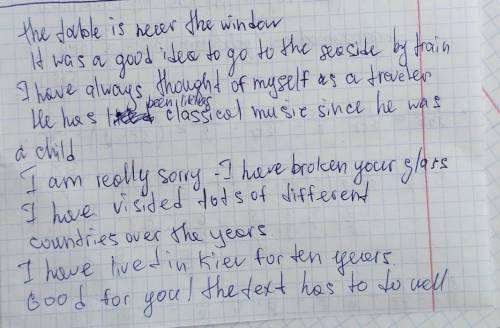 the table is never the window
It was a good idea to go to the seaside by train
I have always thought of myself as a traveler
He has been liking classical music since he was
a child
I am really sorry - I have broken your glass
I have visited lots of different
countries over the years
I have lived in Kiev for ten years.
Good for you! the text has to do well